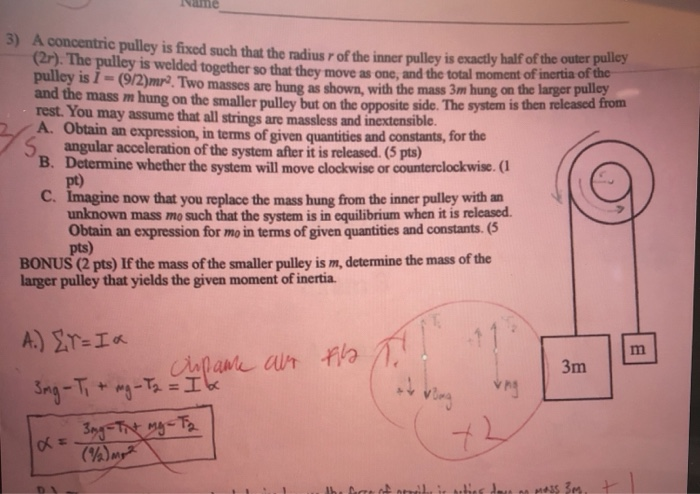 Name
3) A concentric pulley is fixed such that the radius r of the inner pulley is exactly half of the outer pulley
(2r). The pulley is welded together so that they move as one, and the total moment of inertia of the
pulley is I = (9/2)mr². Two masses are hung as shown, with the mass 3m hung on the larger pulley
and the mass m hung on the smaller pulley but on the opposite side. The system is then released from
rest. You may assume that all strings are massless and inextensible.
A. Obtain an expression, in terms of given quantities and constants, for the
angular acceleration of the system after it is released. (5 pts)
B. Determine whether the system will move clockwise or counterclockwise. (1
pt)
C. Imagine now that you replace the mass hung from the inner pulley with an
unknown mass mo such that the system is in equilibrium when it is released.
Obtain an expression for mo in terms of given quantities and constants. (5
pts)
BONUS (2 pts) If the mass of the smaller pulley is m, determine the mass of the
larger pulley that yields the given moment of inertia.
3m
m
A.) Στ = Iα
3mg - T₁ + mg - T₂ = Iα
α = 3mg - T₁ + mg - T₂
(9/2)mr²
T₁
3mg
T₂
mg
+2
mass 3m
+1